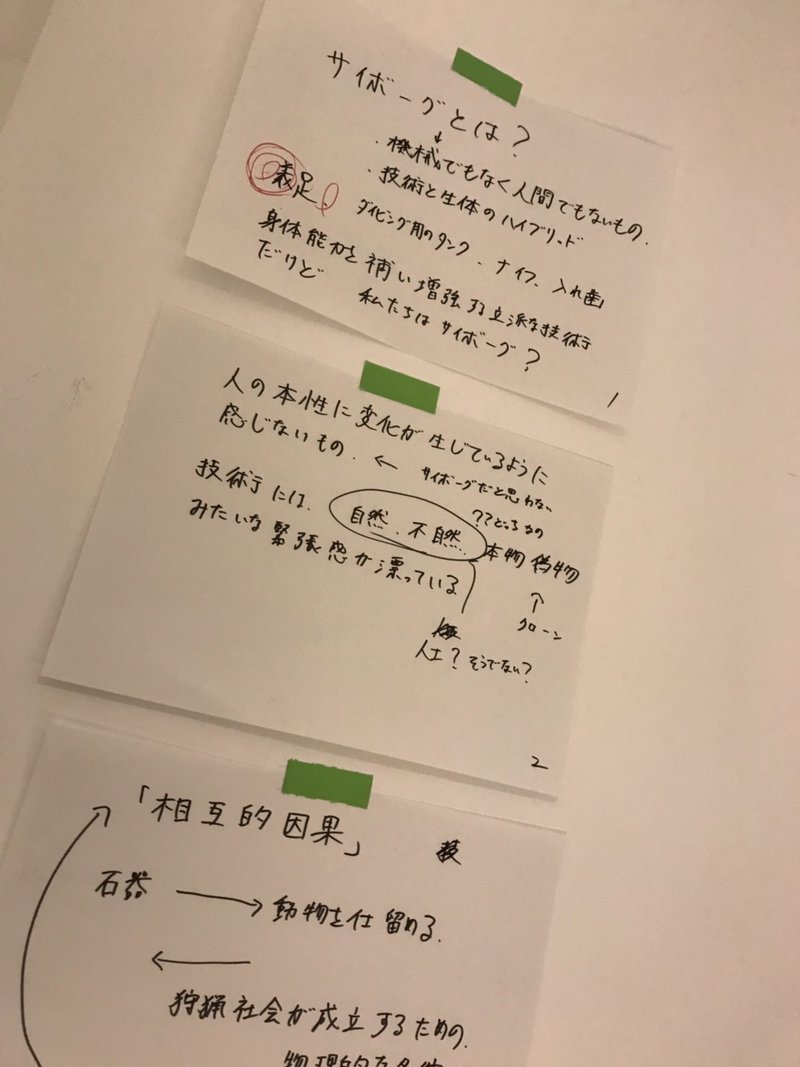 サイボーグとは?
・機械でもなく人間でもないもの.
・技術と生体のハイブリッド
義足、
ダイビング用のタンク、ナイフ、入れ歯
身体能力を補い増強する立派な技術
だけど
私たちはサイボーグ?
1
人の本性に変化が生じているように
感じないもの. ← サイボーグだと思わない
??どっちなの
技術には、自然、不自然、本物 偽物
みたいな緊張感が漂っている
↑
クローン
人工?そうでない?
2
「相互的因果」
技
石器 → 動物を仕留める.
←
狩猟社会が成立するための.
物理的な条件